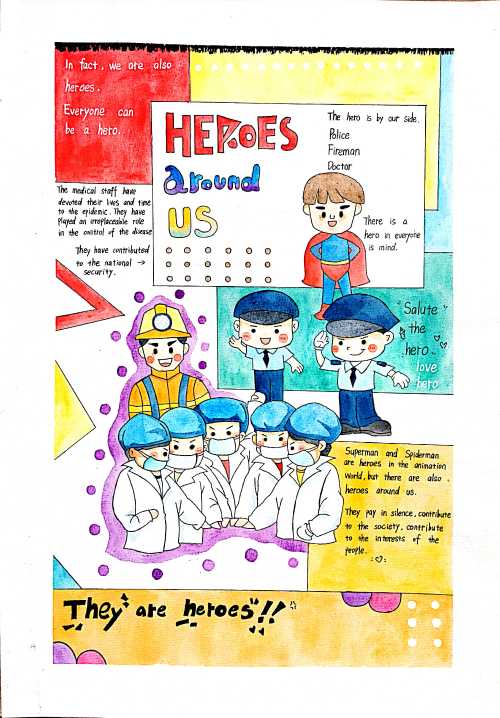 In fact, we are also
heroes.
Everyone can
be a hero.
HEROES
around
us
The hero is by our side.
Police
Fireman
Doctor
There is a
hero in everyone
is mind.
The medical staff have
devoted their lives and time
to the epidemic. They have
played an irreplaceable role
in the control of the disease
They have contributed
to the national →
security.
"Salute
the
hero
love
hero
Superman and Spiderman
are heroes in the animation
world, but there are also
heroes around us.
They pay in silence, contribute
to the society, contribute
to the interests of the
people.
They are heroes!!